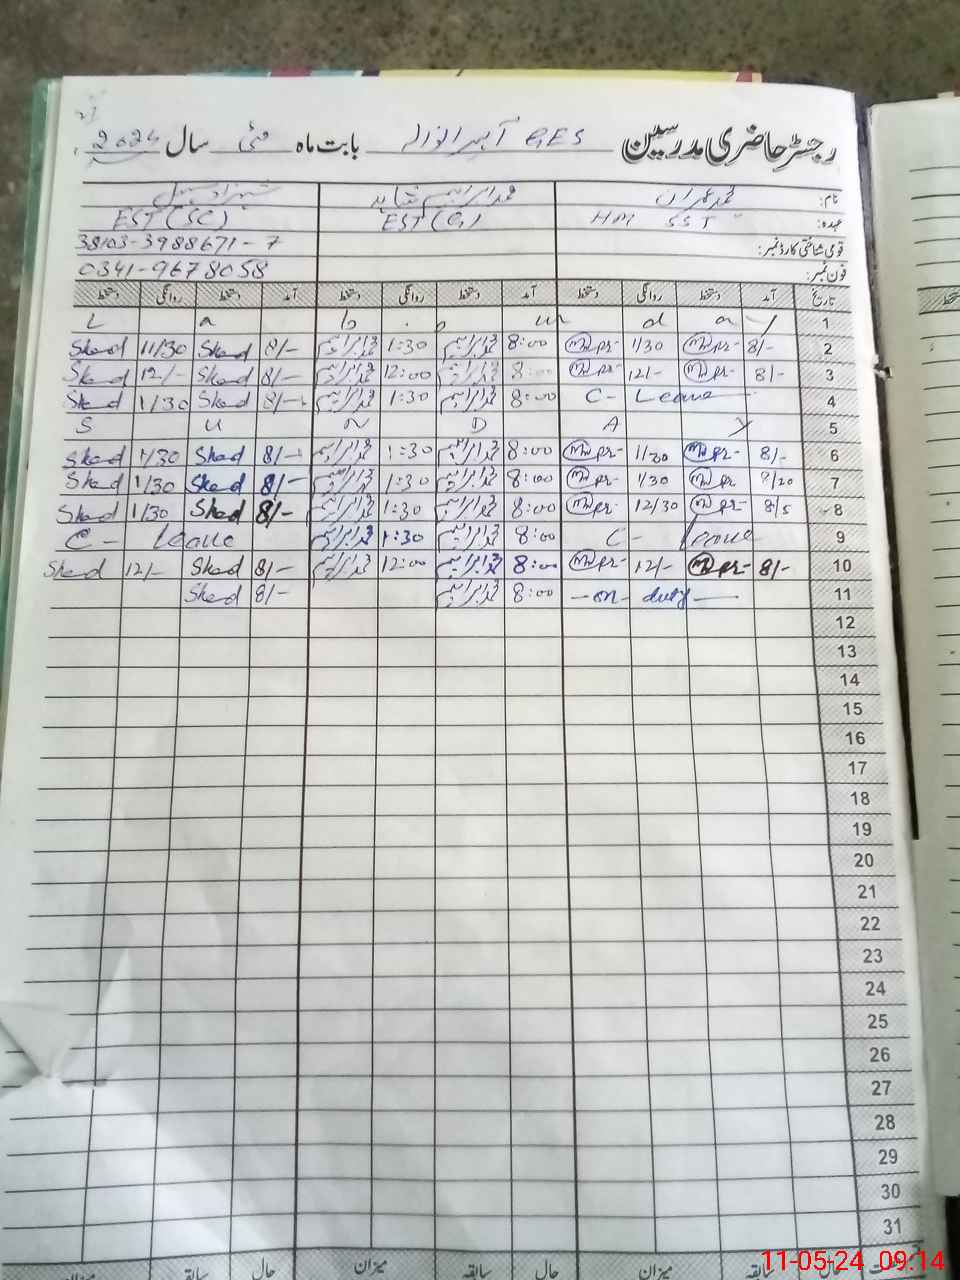 رجسٹر حاضری مدرسین GES آہیرانوالہ بابت ماہ مئی سال 2024
نام: محمد عمران محمد ابراہیم شاہد
عہدہ: HM SST EST (G) EST (SC)
قومی شناختی کارڈ نمبر: 38103-3988671-7
فون نمبر: 0341-9678058
تاریخ آمد دستخط روانگی دستخط آمد دستخط روانگی دستخط آمد دستخط روانگی دستخط
1 L a b o u r d a y
2 8/- 1/30 8:00 محمد ابراہیم 1:30 محمد ابراہیم 8/- Shad 11/30 Shad
3 8/- 12/- 8:00 محمد ابراہیم 12:00 محمد ابراہیم 8/- Shad 12/- Shad
4 C- Leave 8:00 محمد ابراہیم 1:30 محمد ابراہیم 8/- Shad 1/30 Shad
5 S U N D A Y
6 8/- 1/30 8:00 محمد ابراہیم 1:30 محمد ابراہیم 8/- Shad 1/30 Shad
7 8/20 1/30 8:00 محمد ابراہیم 1:30 محمد ابراہیم 8/- Shad 1/30 Shad
8 8/5 12/30 8:00 محمد ابراہیم 1:30 محمد ابراہیم 8/- Shad 1/30 Shad
9 C- leave 8:00 محمد ابراہیم 1:30 محمد ابراہیم C- leave
10 8/- 12/- 8:00 محمد ابراہیم 12:00 محمد ابراہیم 8/- Shad 12/- Shad
11 - on duty - 8:00 محمد ابراہیم 8/- Shad
12
13
14
15
16
17
18
19
20
21
22
23
24
25
26
27
28
29
30
31
حال سابقہ میزان حال سابقہ میزان حال سابقہ میزان
11-05-24 09:14